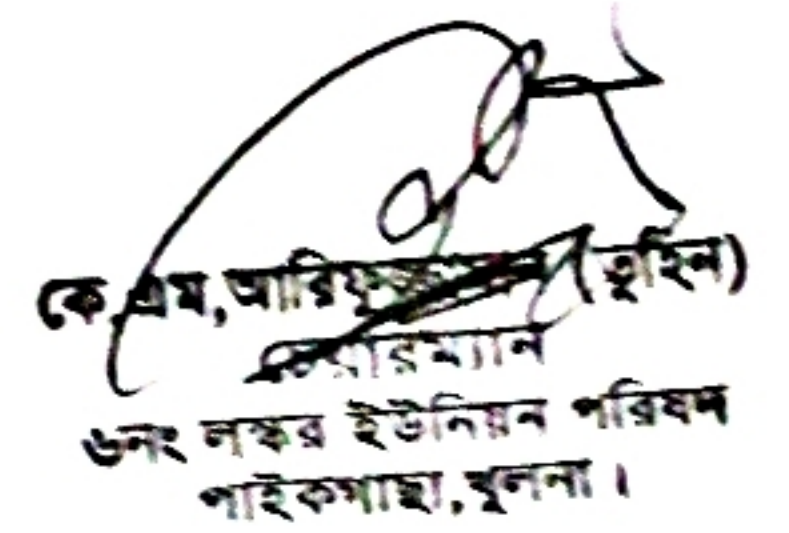 কে, এম, আরিফুজ্জামান (তুহিন)
চেয়ারম্যান
৬নং লস্কর ইউনিয়ন পরিষদ
পাইকগাছা, খুলনা।